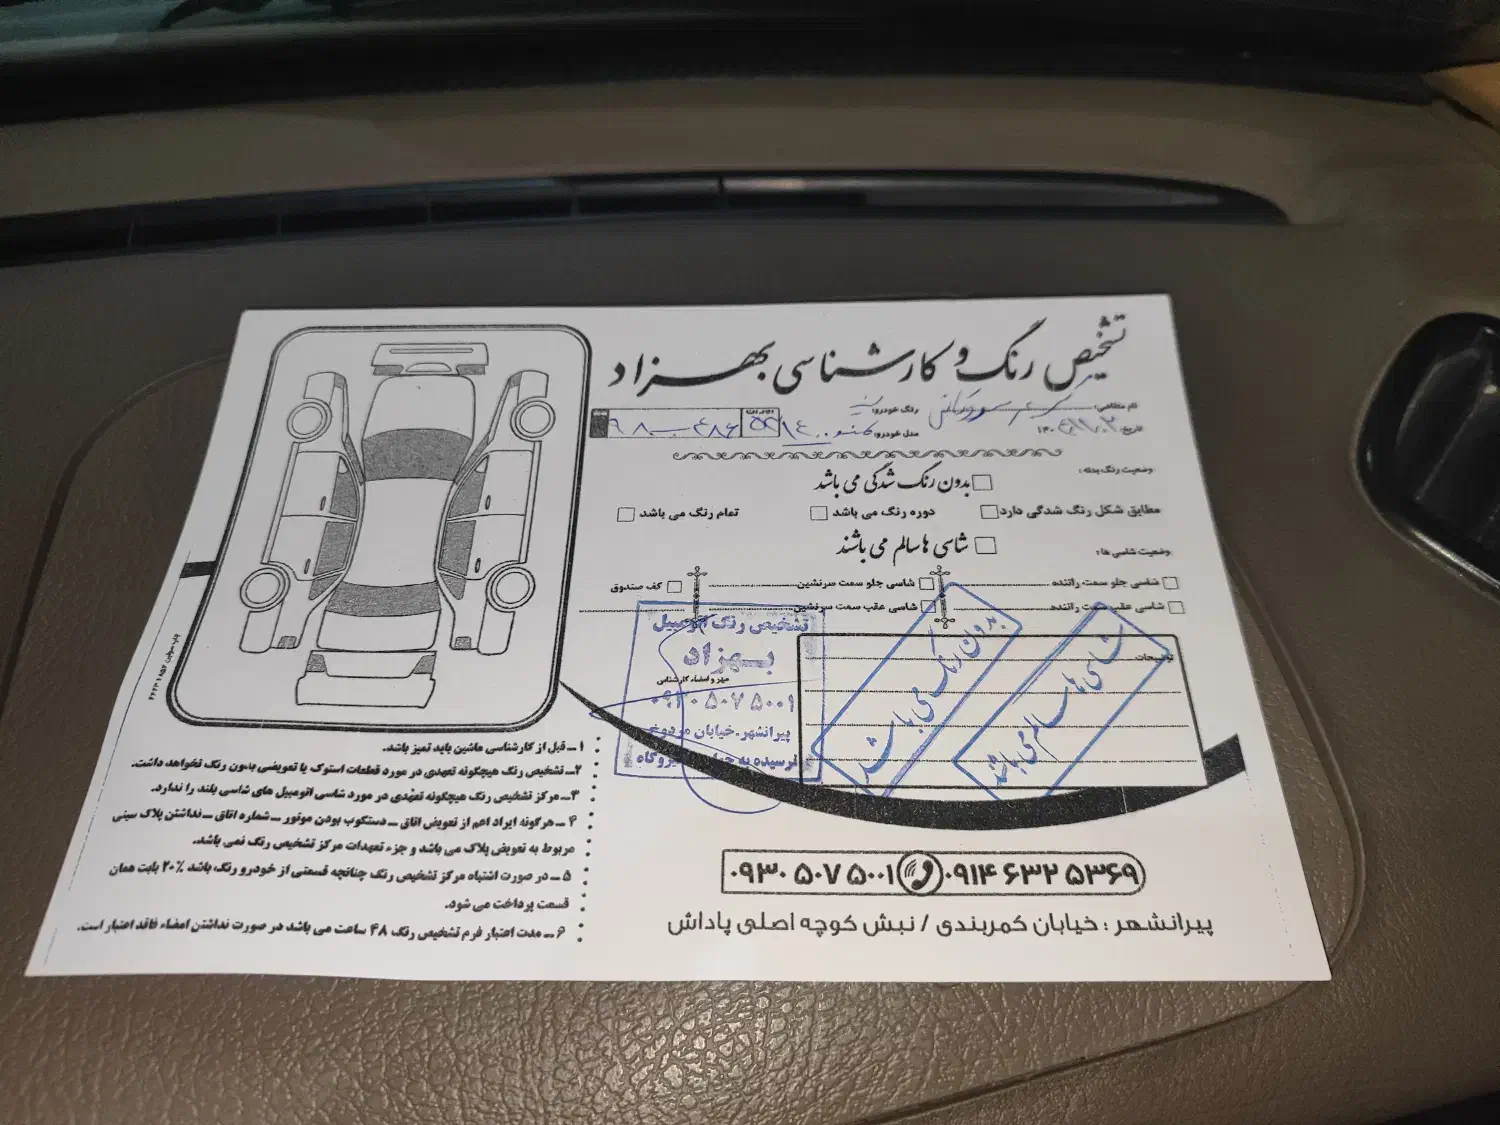 تشخیص رنگ و کارشناسی بهزاد
نام متقاضی:
رنگ خودرو:
تاریخ:
مدل خودرو: ۱۴۰۰
ایران ۵۲
وضعیت رنگ بدنه:
بدون رنگ شدگی می باشد
مطابق شکل رنگ شدگی دارد
دوره رنگ می باشد
تمام رنگ می باشد
وضعیت شاسی ها:
شاسی ها سالم می باشند
شاسی جلو سمت راننده
شاسی جلو سمت سرنشین
کف صندوق
شاسی عقب سمت راننده
شاسی عقب سمت سرنشین
توضیحات:
بدون رنگ می باشد
شاسی ها سالم می باشند
تشخیص رنگ اتومبیل
بهزاد
مهر و امضاء کارشناسی
۰۹۳۰ ۵۰۷ ۵۰۰۱
پیرانشهر.خیابان
نرسیده به
۱ ــ قبل از کارشناسی ماشین باید تمیز باشد.
۲ــ تشخیص رنگ هیچگونه تعهدی در مورد قطعات استوک یا تعویضی بدون رنگ نخواهد داشت.
۳ــ مرکز تشخیص رنگ هیچگونه تعهدی در مورد شاسی اتومبیل های شاسی بلند را ندارد.
۴ ــ هرگونه ایراد اعم از تعویض اتاق ــ دستکوب بودن موتور ــ شماره اتاق ــ نداشتن پلاک سینی
مربوط به تعویض پلاک می باشد و جزء تعهدات مرکز تشخیص رنگ نمی باشد.
۵ ــ در صورت اشتباه مرکز تشخیص رنگ چنانچه قسمتی از خودرو رنگ باشد ۲۰٪ بابت همان
قسمت پرداخت می شود.
۶ ــ مدت اعتبار فرم تشخیص رنگ ۴۸ ساعت می باشد در صورت نداشتن امضاء فاقد اعتبار است.
۰۹۳۰ ۵۰۷ ۵۰۰۱
۰۹۱۴ ۶۳۲ ۵۳۶۹
پیرانشهر : خیابان کمربندی / نبش کوچه اصلی پاداش